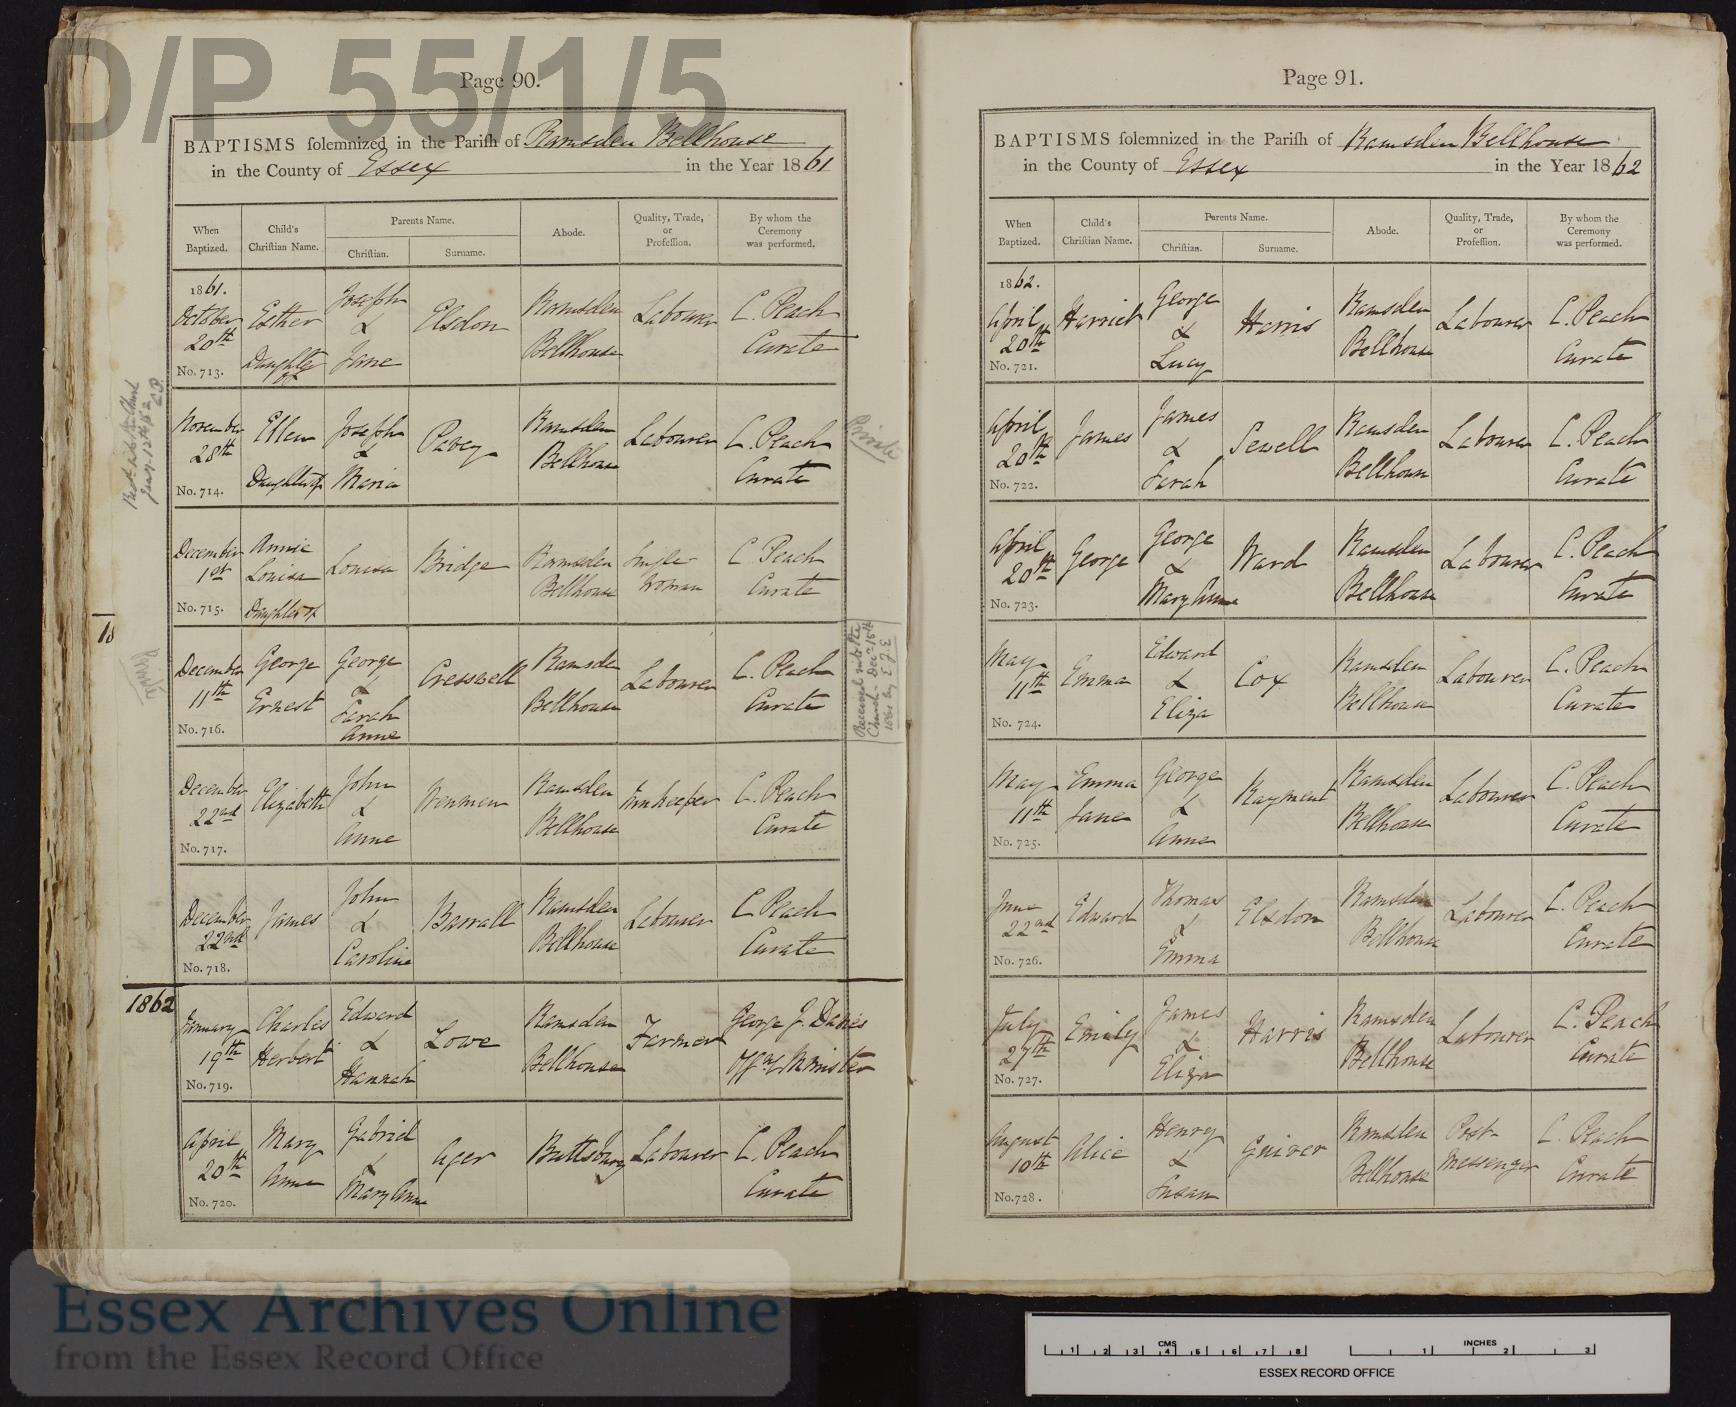 D/P 55/1/5
Page 90.
BAPTISMS solemnized in the Parish of Ramsden Bellhouse
in the County of Essex in the Year 1861
When Baptized. Child's Christian Name. Parents Name. Christian. Surname. Abode. Quality, Trade, or Profession. By whom the Ceremony was performed.
1861. October 20th No. 713. Esther Daughter of Joseph & Jane Elsdon Ramsden Bellhouse Labourer C. Peach Curate
November 28th No. 714. Ellen Daughter of Joseph & Maria Pavey Ramsden Bellhouse Labourer C. Peach Curate
December 1st No. 715. Annie Louisa Daughter of Louisa Bridge Ramsden Bellhouse Single Woman C Peach Curate
December 11th No. 716. George Ernest George & Sarah Anne Cresswell Ramsden Bellhouse Labourer C. Peach Curate
Received into the
Church - Decr 15th
1861 by
Privately
December 22nd No. 717. Elizabeth John & Anne Ramsden Bellhouse Innkeeper C. Peach Curate
December 22nd No. 718. James John & Caroline Barrall Ramsden Bellhouse Labourer C Peach Curate
1862
January 19th No. 719. Charles Herbert Edward & Hannah Lowe Ramsden Bellhouse Farmer George J. Davies Offg Minister
April 20th No. 720. Mary Anne Gabriel & Mary Anne Ager Buttsbury Labourer C. Peach Curate
Page 91.
BAPTISMS solemnized in the Parish of Ramsden Bellhouse
in the County of Essex in the Year 1862
When Baptized. Child's Christian Name. Parents Name. Christian. Surname. Abode. Quality, Trade, or Profession. By whom the Ceremony was performed.
1862. April 20th No. 721. Harriet George & Lucy Harris Ramsden Bellhouse Labourer C. Peach Curate
April 20th No. 722. James James & Sarah Sewell Ramsden Bellhouse Labourer C. Peach Curate
April 20th No. 723. George George & Mary Anne Ward Ramsden Bellhouse Labourer C. Peach Curate
May 11th No. 724. Emma Edward & Eliza Cox Ramsden Bellhouse Labourer C. Peach Curate
May 11th No. 725. Emma Jane George & Anne Rayment Ramsden Bellhouse Labourer C. Peach Curate
June 22nd No. 726. Edward Thomas & Emma Elsdon Ramsden Bellhouse Labourer C. Peach Curate
July 27th No. 727. Emily James & Eliza Harris Ramsden Bellhouse Labourer C. Peach Curate
August 10th No. 728. Alice Henry & Susan Guiver Ramsden Bellhouse Post-Messenger C. Peach Curate
Essex Archives Online
from the Essex Record Office
CMS INCHES
1 2 3 4 5 6 7 8 1 2 3
ESSEX RECORD OFFICE